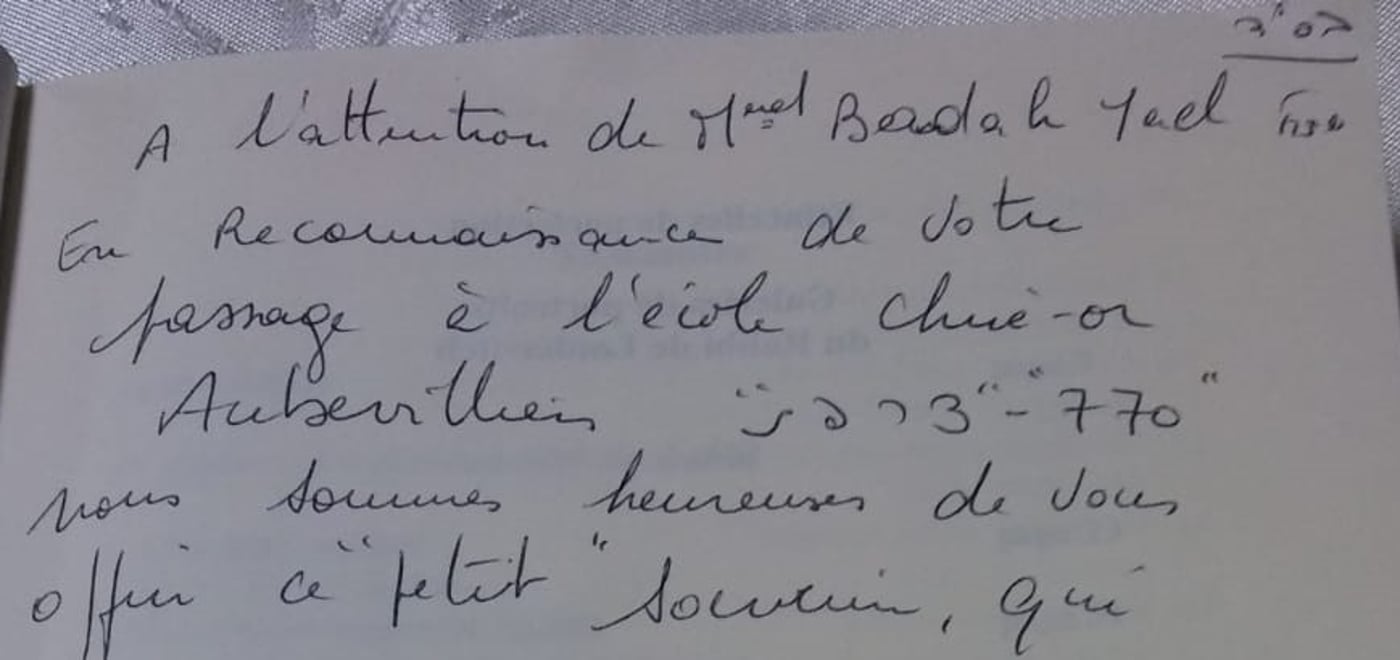 בס"ד
A l'attention de Yael
En Reconnaissance de votre
passage à l'école Chné-or
Aubervilliers "צרפת" - "770"
nous sommes heureuses de vous
offrir ce "petit" souvenir, qui